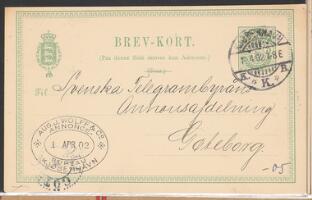 BREV-KORT.
(Paa denne Side skrives kun Adressen.)
KJØBENHAVN
1.4.02
K.
Til Svenska Telegrambyrån
Annonsafdelning
Göteborg
AUG. J. WOLFF & CO.
ANNONCE
1 APR. 02
KJØBENHAVN
-05